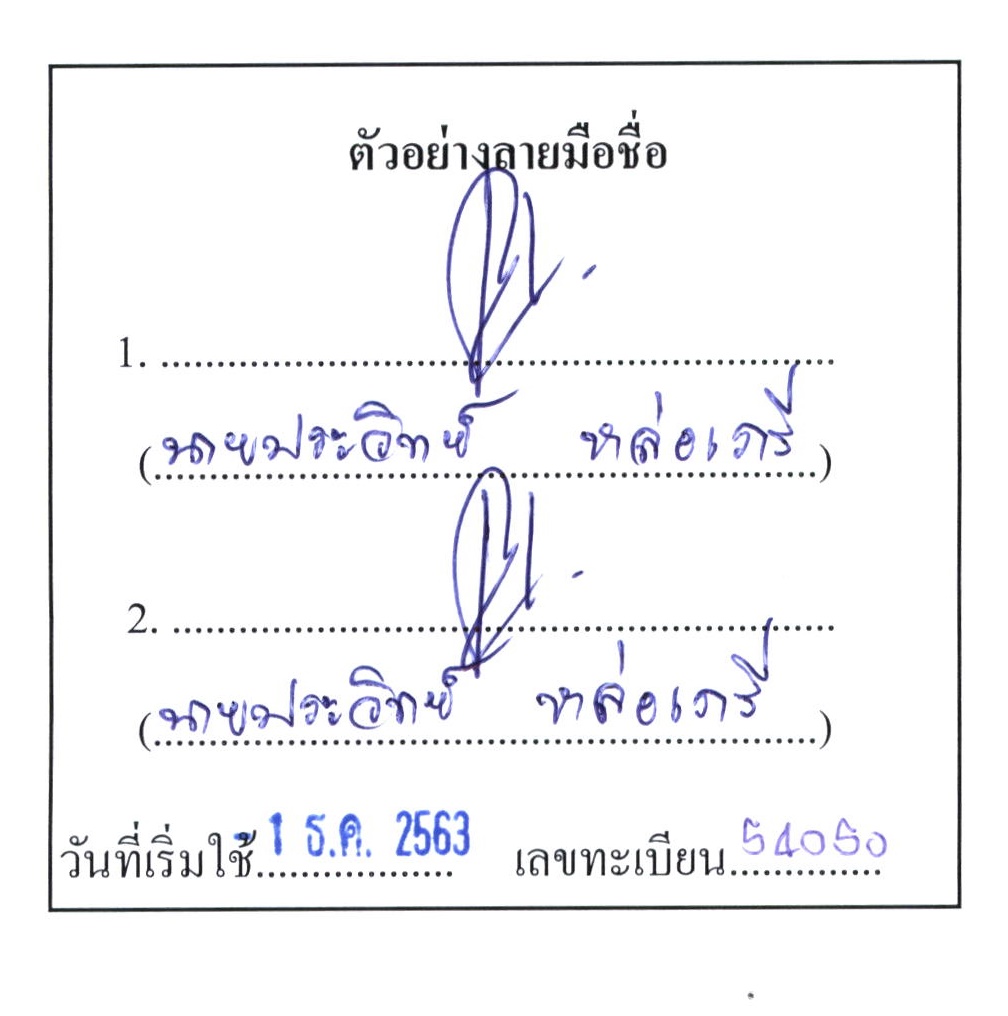 ตัวอย่างลายมือชื่อ
1. ..........................................................
(นายประวิทย์ หล่อเภรี)
2. ..........................................................
(นายประวิทย์ หล่อเภรี)
วันที่เริ่มใช้ 1 ธ.ค. 2563 เลขทะเบียน 54050